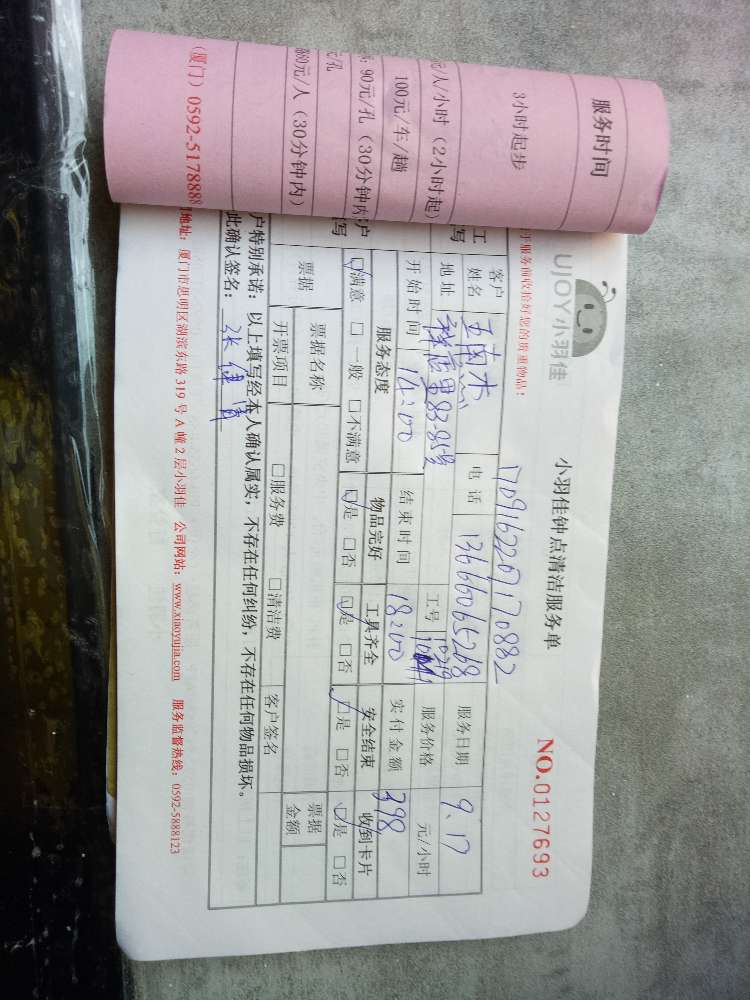 服务时间
3小时起步
元/人/小时（2小时起）
100元/车/趟
90元/孔（30分钟内
元/孔
80元/人（30分钟内）
（厦门）0592-5178888
UJOY小羽佳
小羽佳钟点清洁服务单
NO.0127693
于服务前收拾好您的贵重物品！
1709162207170882
客户姓名
电话 13666065268
工号
服务日期 9.17
地址
83-85号
服务价格 元/小时
开始时间 14:00
结束时间 18:00
实付金额 398
服务态度 物品完好 工具齐全 安全结束 收到卡片
☑满意 □一般 □不满意 ☑是 □否 ☑是 □否 ☑是 □否 ☑是 □否
票据 票据名称 票据金额
开票项目 □服务费 □清洁费 客户签名
户特别承诺：以上填写经本人确认属实，不存在任何纠纷，不存在任何物品损坏。
此确认签名：
地址：厦门市思明区湖滨东路 319 号 A 幢 2 层小羽佳 公司网站：www.xiaoyujia.com 服务监督热线：0592-5888123